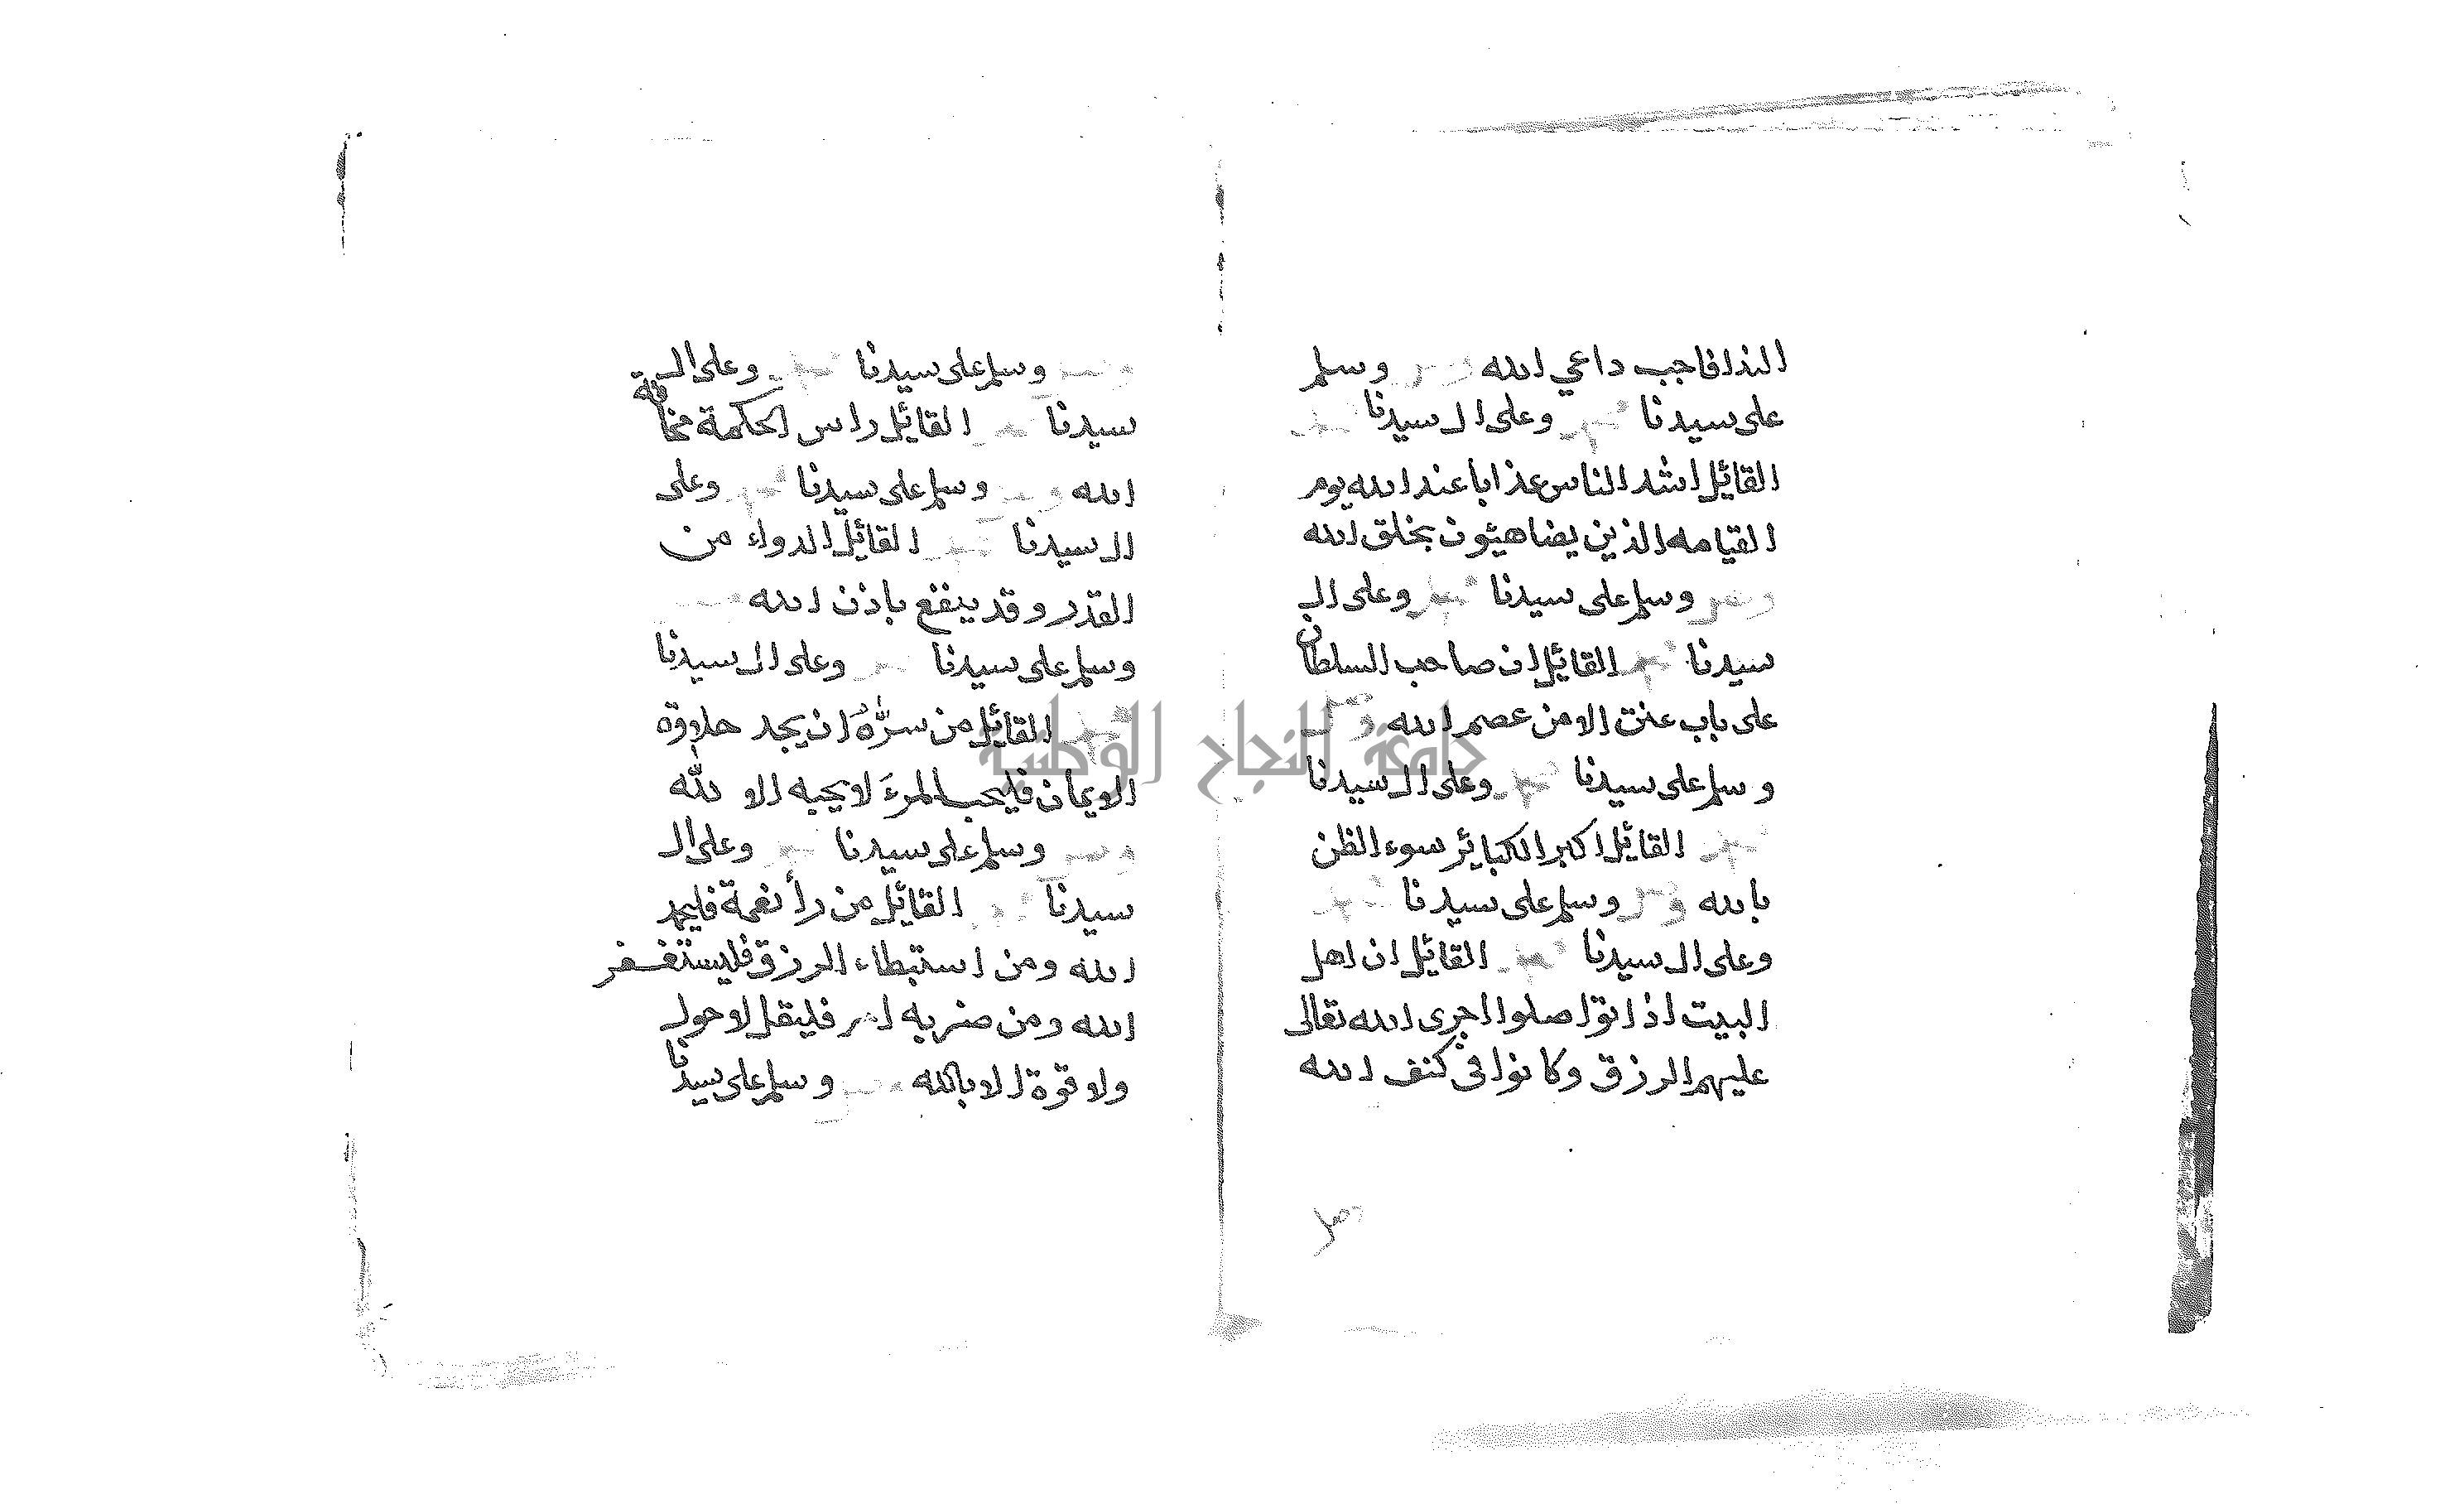 الندا فاجب داعي الله وصل وسلم
على سيدنا محمد وعلى ال سيدنا محمد
القائل اشد الناس عذابا عند الله يوم
القيامه الذين يضاهئون بخلق الله
وصل وسلم على سيدنا محمد وعلى ال
سيدنا محمد القائل ان صاحب السلطان
على باب عنت الا من عصم الله وصل
وسلم على سيدنا محمد وعلى ال سيدنا
محمد القائل اكبر الكبائر سوء الظن
بالله وصل وسلم على سيدنا محمد
وعلى ال سيدنا محمد القائل ان اهل
البيت اذا تواصلوا اجرى الله تعالى
عليهم الرزق وكانوا في كنف الله
وصل
وصل وسلم على سيدنا محمد وعلى ال
سيدنا محمد القائل راس الحكمة مخافة
الله وصل وسلم على سيدنا محمد وعلى
ال سيدنا محمد القائل الدواء من
القدر وقد ينفع باذن الله وصل
وسلم على سيدنا محمد وعلى ال سيدنا
محمد القائل من سره ان يجد حلاوة
الايمان فليحب المرء لا يحبه الا لله
وصل وسلم على سيدنا محمد وعلى ال
سيدنا محمد القائل من رأ نعمة فليحمد
الله ومن استبطاء الرزق فليستغفر
الله ومن ضربه امر فليقل لا حول
ولا قوة الا بالله وصل وسلم على سيدنا
جامعة النجاح الوطنية